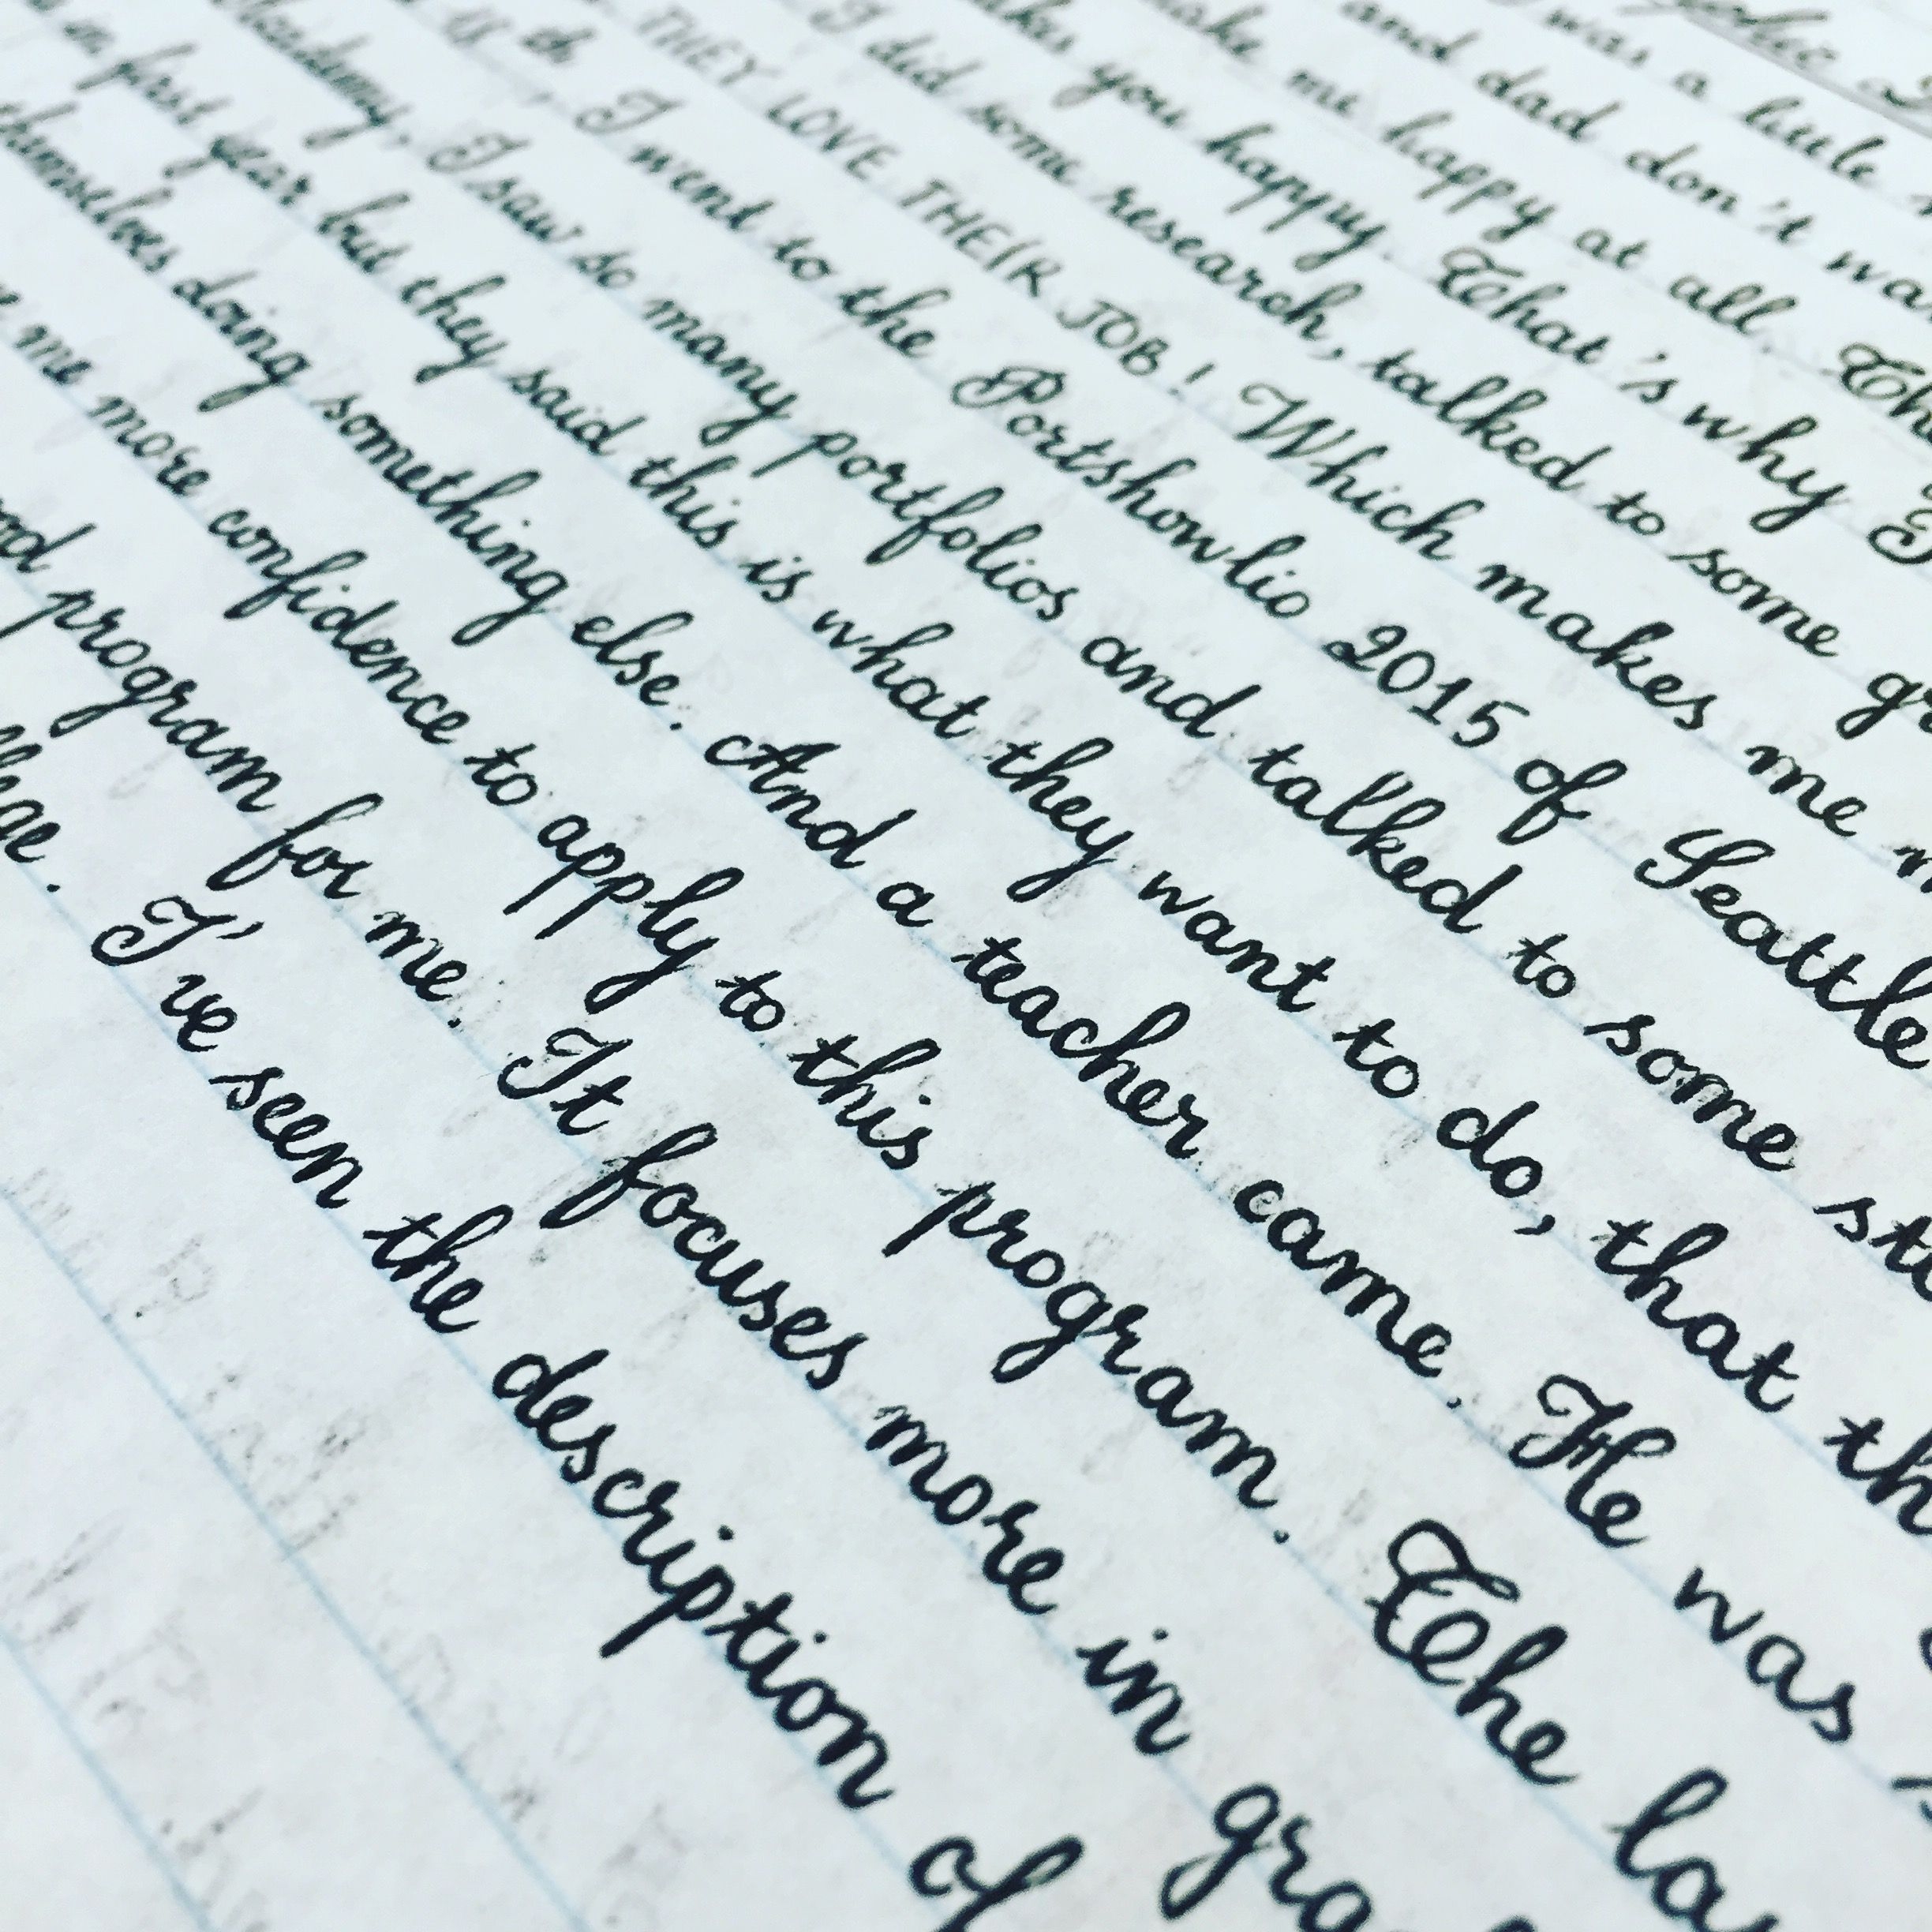 was a little
and dad don't
make me happy at all.
you happy. That's why I
I did some research, talked to some
THEY LOVE THEIR JOB! Which makes me
I went to the Portshowlio 2015 of Seattle
Academy, I saw so many portfolios and talked to some
in first year but they said this is what they want to do, that
themselves doing something else. And a teacher came. He was
me more confidence to apply to this program. The
program for me. It focuses more in
I've seen the description of